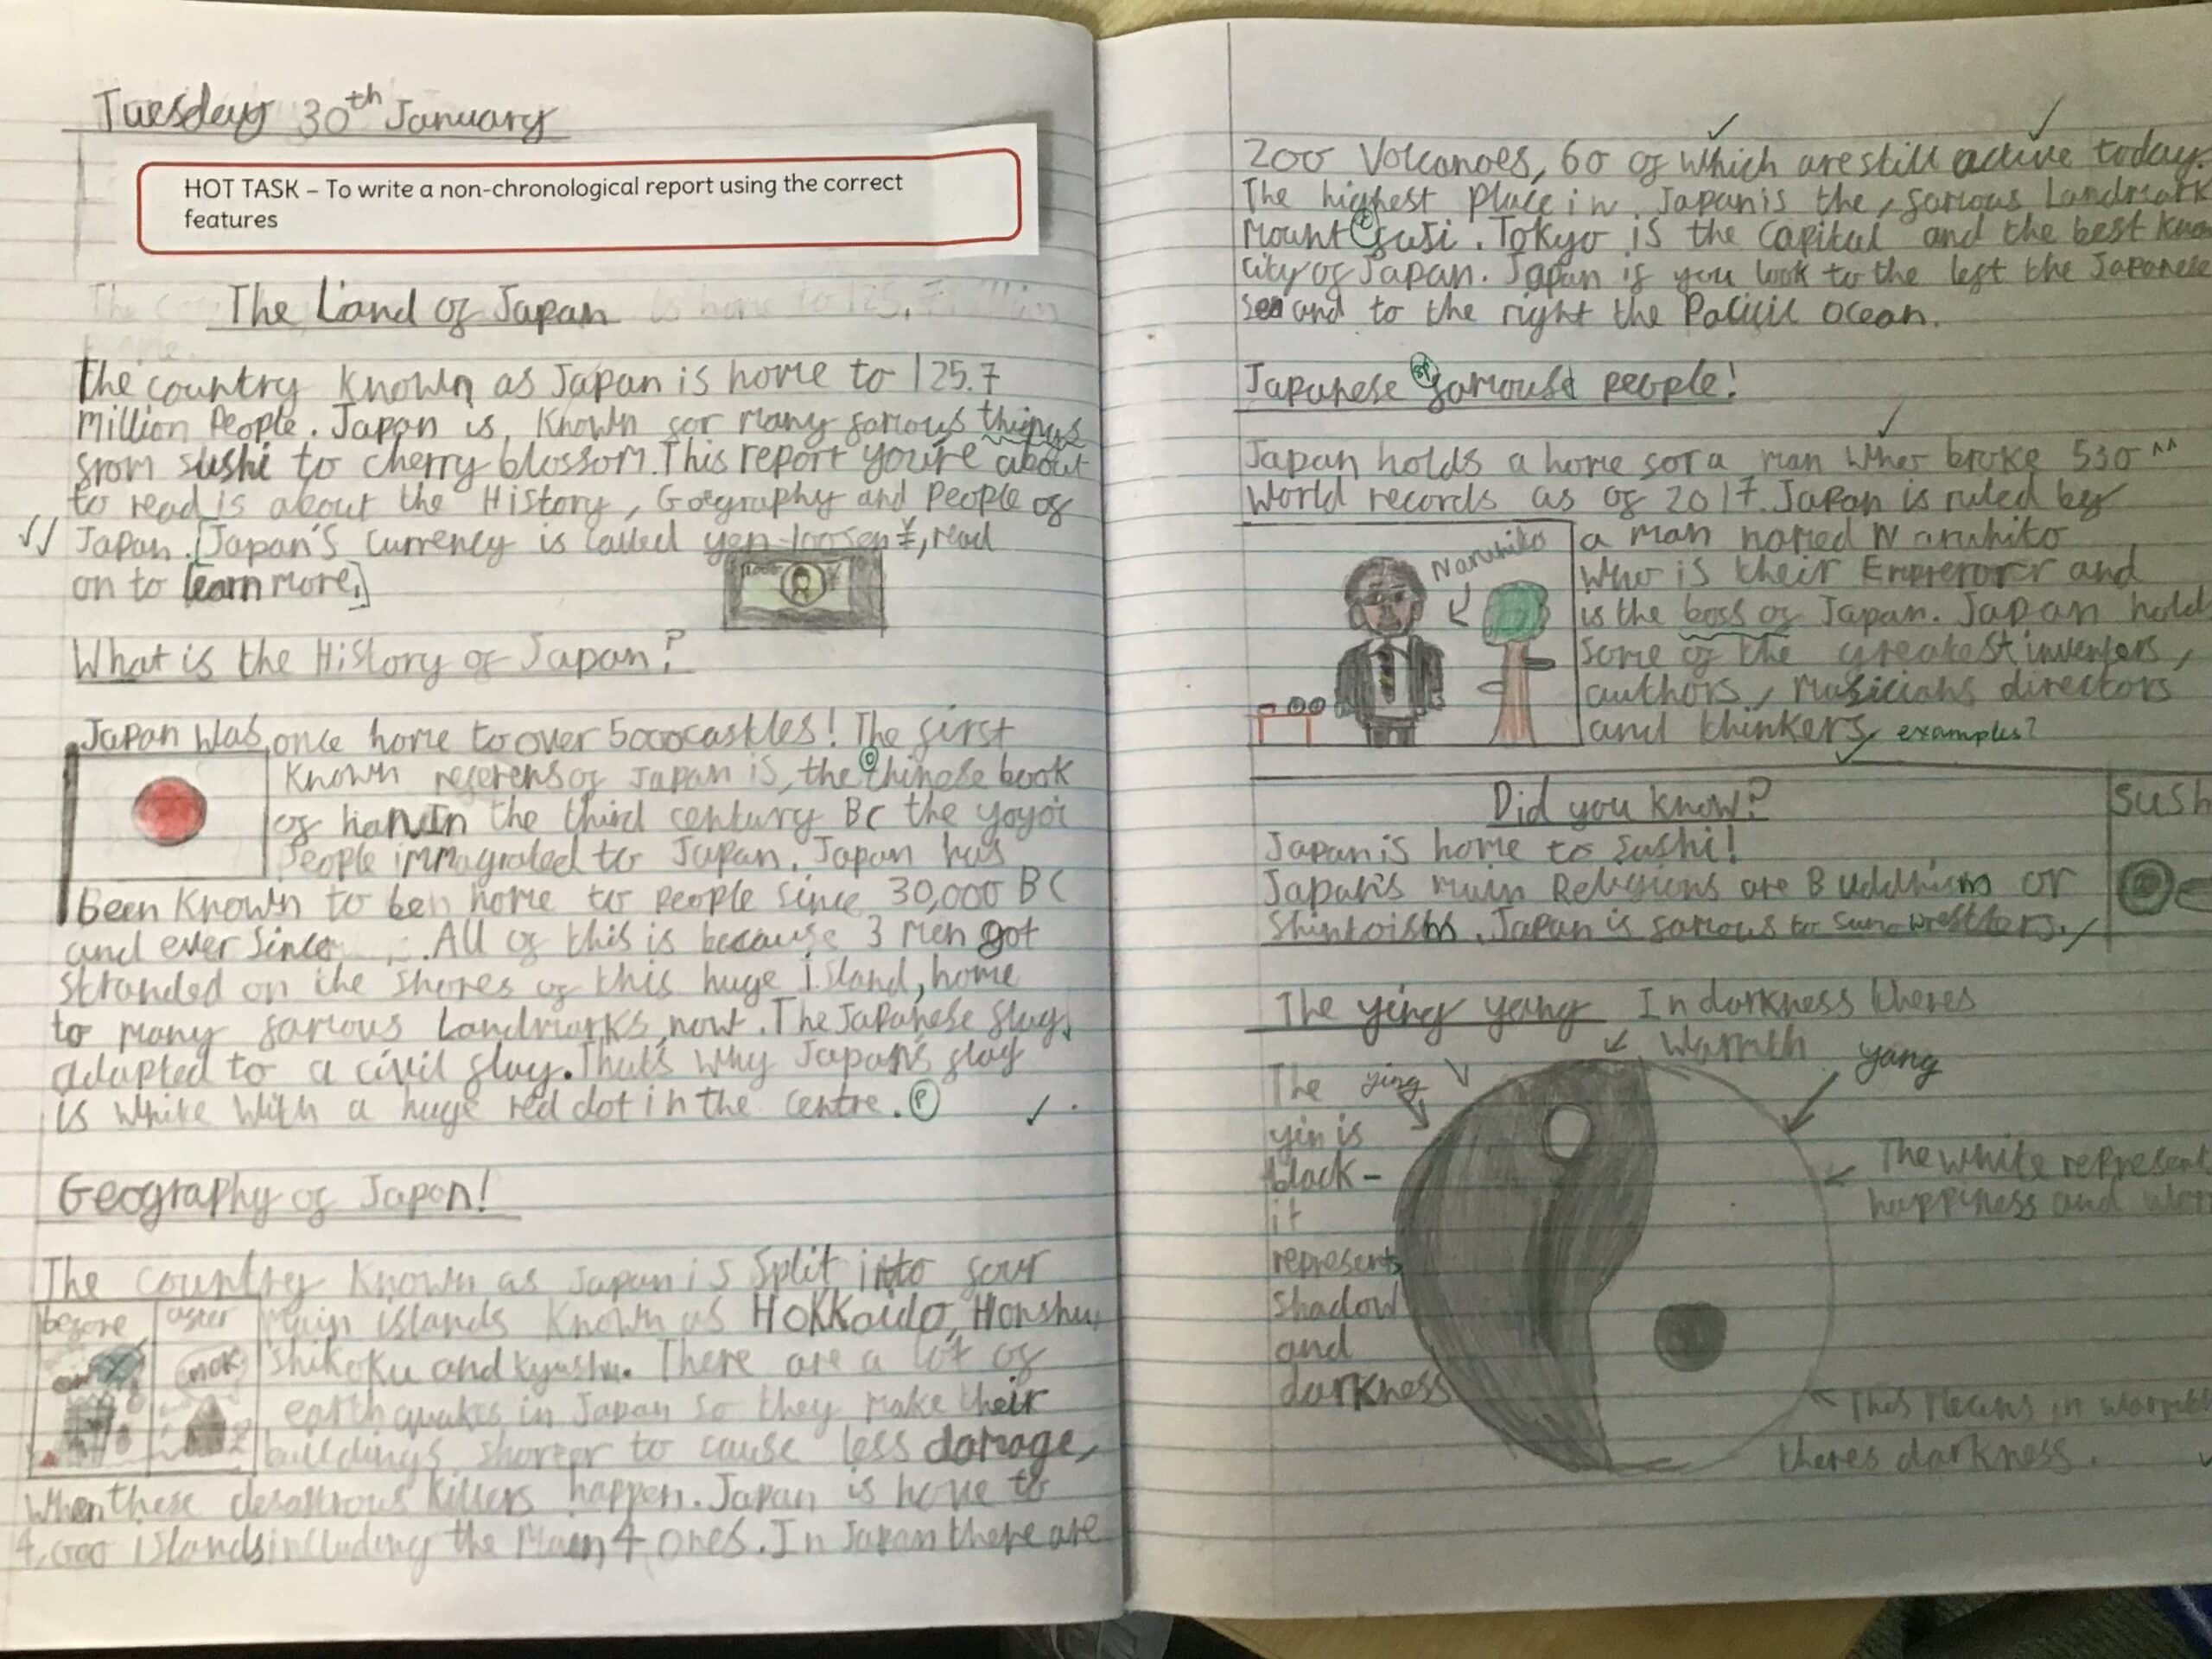 Tuesday 30th January
HOT TASK – To write a non-chronological report using the correct
features
The Land of Japan
The country known as Japan is home to 125.7
million People. Japan is known for many famous things
from sushi to cherry blossom. This report you're about
to read is about the History, Geography and People of
Japan. [Japan's currency is called yen ¥, read
on to learn more.]
What is the History of Japan?
Japan was once home to over 5000 castles! The first
known referens of Japan is, the chinese book
of han. In the third century BC the yoyoi
People immagrated to Japan. Japan has
been known to be home to people since 30,000 BC
and ever since. All of this is because 3 men got
stranded on the shores of this huge island, home
to many famous Landmarks, now. The Japanese flag,
adapted to a civil flag. That's why Japan's flag
is white with a huge red dot in the centre. P
Geography of Japan!
The country known as Japan is split into four
before after
main islands known as Hokkaido, Honshu,
shikoku and kyushu. There are a lot of
earthquakes in Japan so they make their
buildings shorter to cause less damage,
when these desastrous killers happen. Japan is home to
4,000 islands including the main 4 ones. In Japan there are
200 Volcanoes, 60 of which are still active today.
The highest place in Japan is the, famous Landmark
Mount fuji. Tokyo is the capital and the best
city of Japan. Japan if you look to the left the Japanese
sea and to the right the Pacific Ocean.
Japanese sp famous people!
Japan holds a home for a man who broke 530
world records as of 2017. Japan is ruled by
Naruhito
a man named Naruhito
who is their Emperor and
is the boss of Japan. Japan hold
some of the greatest inventers,
authors, musicians directors
and thinkers, examples?
Did you know?
Japan is home to sushi!
Japan's main Religions are Buddhism or
Shintoism. Japan is famous to sumo wrestlers.
The ying yang
In darkness theres
warmth
yang
The ying
yin is
black -
it
represents
shadow
and
darkness
The white represent
happiness and
This means in
theres darkness.